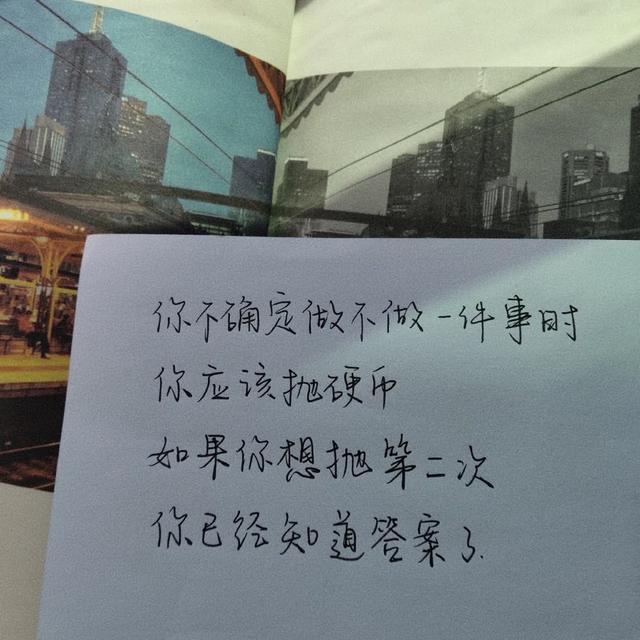 你不确定做不做一件事时
你应该抛硬币
如果你想抛第二次
你已经知道答案了.